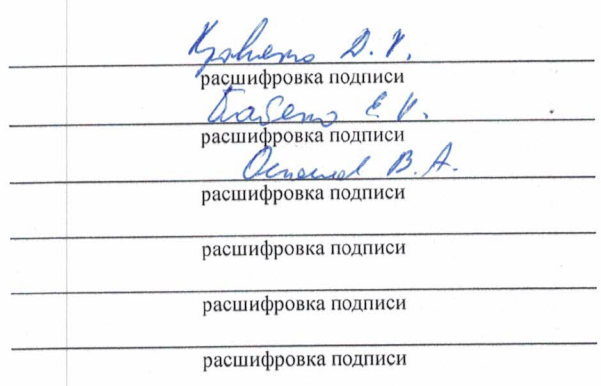 Д. И.
расшифровка подписи
Е. И.
расшифровка подписи
В. А.
расшифровка подписи
расшифровка подписи
расшифровка подписи
расшифровка подписи